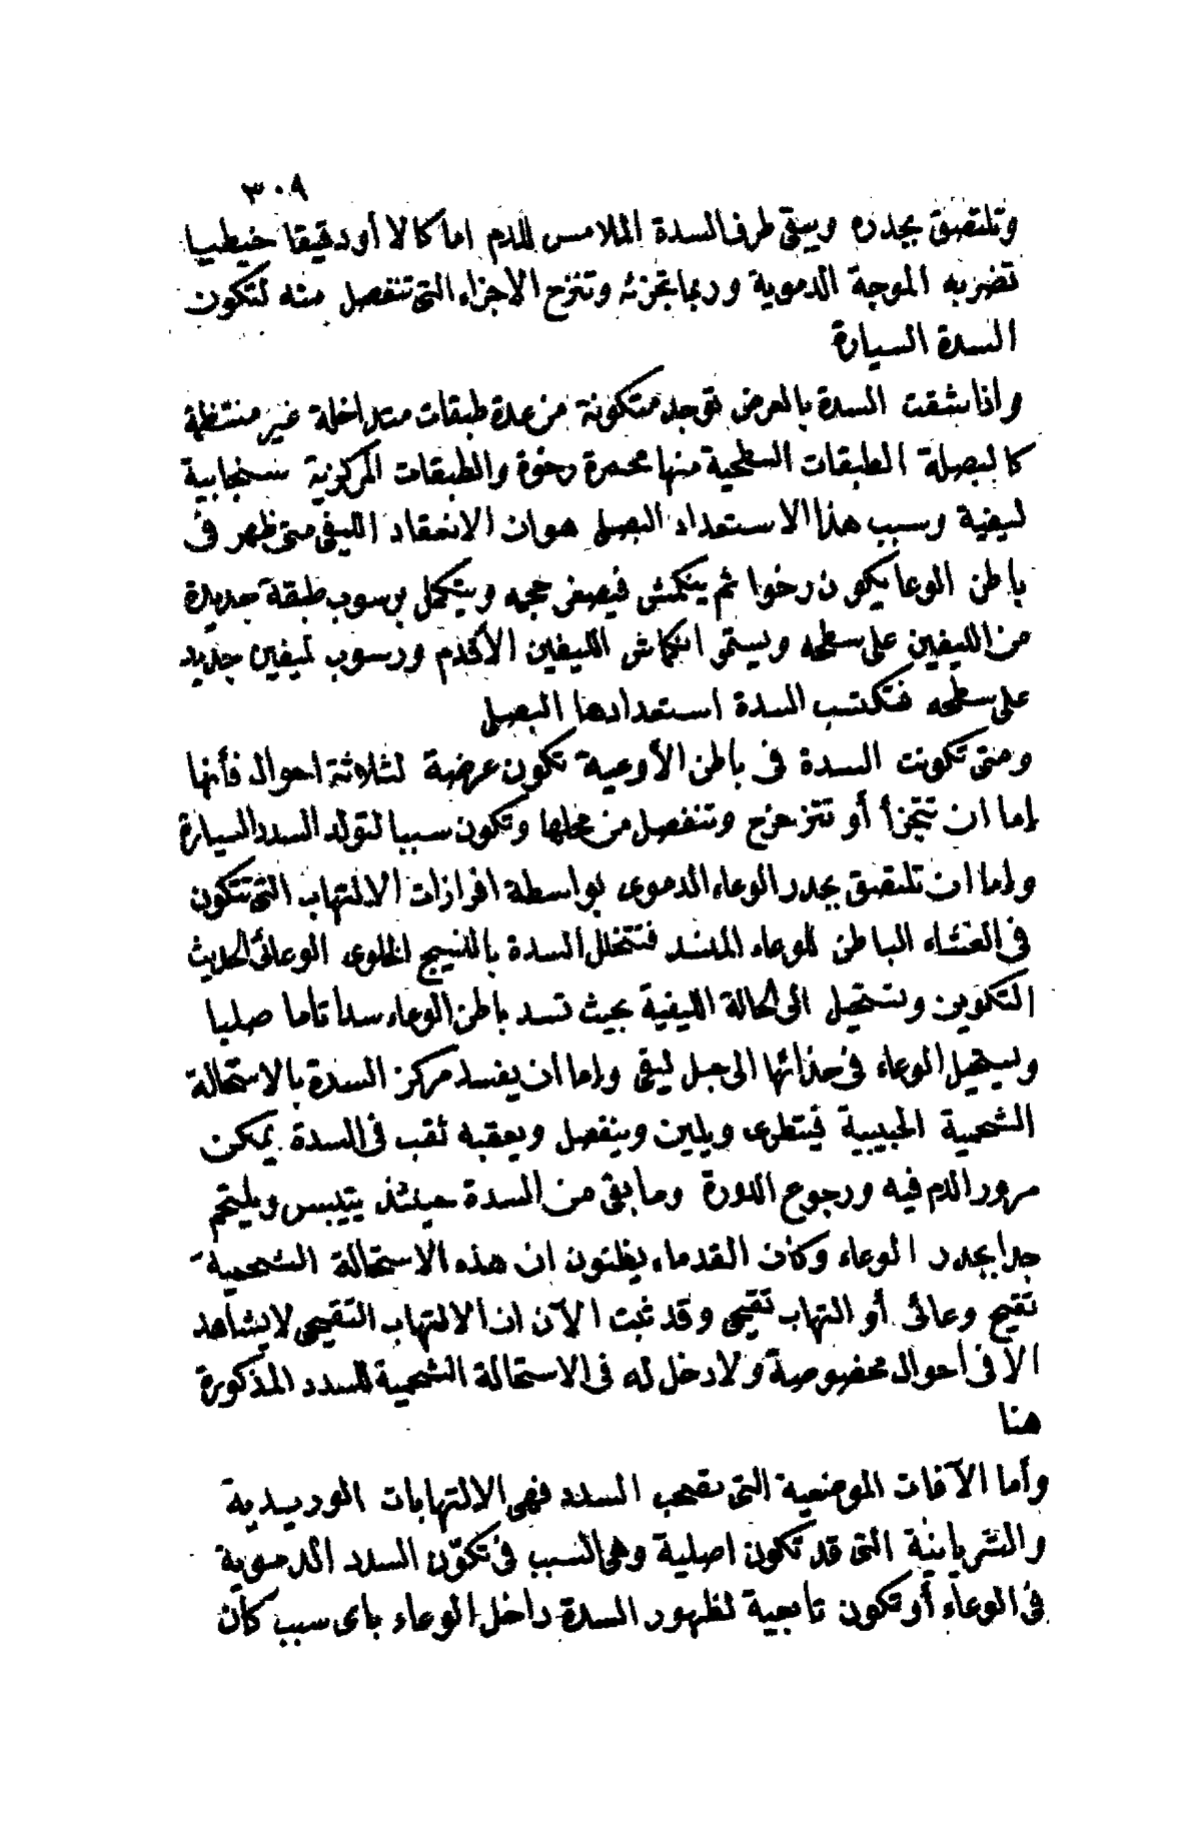 ٣٠٩
وتلتصق بجدره ويبقى طرف السدة الملامس للدم اما كالا أو دقيقا خيطيا
تضربه الموجة الدموية وربما تجزئه وتنزح الاجزاء التى تنفصل منه لتكون
السدة السيارة
واذا شقت السدة بالعرض توجد متكونة من عدة طبقات متداخلة غير منتظمة
كالبصلة الطبقات السطحية منها محمرة رخوة والطبقات المركزية سنجابية
ليفية وسبب هذا الاستعداد البصلى هو ان الانعقاد الليفى متى ظهر فى
باطن الوعا يكون رخوا ثم ينكمش فيصغر حجمه ويتكمل برسوب طبقة جديدة
من الليفين على سطحه ويستمر انكماش الليفين الأقدم ورسوب ليفين جديد
على سطحه فتكتسب السدة استعدادها البصلى
ومتى تكونت السدة فى باطن الأوعية تكون عرضة لثلاثة احوال فأنها
إما ان تتجزأ أو تتزحزح وتنفصل من محلها وتكون سببا لتولد السدد السيارة
وإما ان تلتصق بجدر الوعاء الدموى بواسطة افرازات الالتهاب التى تتكون
فى الغشاء الباطن للوعاء المنسد فتتخلل السدة بالنسيج الخلوى الوعائى الحديث
التكوين وتستحيل الى الحالة الليفية بحيث تسد باطن الوعاء سدا تاما صلبا
ويستحيل الوعاء فى حذائها الى حبل ليفى وإما ان يفسد مركز السدة بالاستحالة
الشحمية الحبيبية فيتطرى ويلين وينفصل ويعقبه ثقب فى السدة يمكن
مرور الدم فيه ورجوع الدورة وما بقى من السدة حينئذ يتيبس ويلتحم
جدا بجدر الوعاء وكان القدماء يظنون ان هذه الاستحالة الشحمية
تقيح وعائى أو التهاب تقيحى وقد ثبت الآن ان الالتهاب التقيحى لا يشاهد
الا فى احوال مخصوصة ولا دخل له فى الاستحالة الشحمية للسدد المذكورة
هنا
وأما الآفات الموضعية التى تصحب السدد فهى الالتهابات الوريدية
والشريانية التى قد تكون اصلية وهى السبب فى تكوّن السدد الدموية
فى الوعاء أو تكون تابعية لظهور السدة داخل الوعاء باى سبب كان